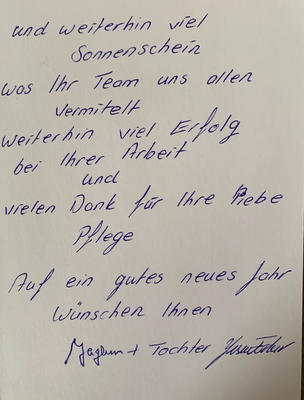 und weiterhin viel
Sonnenschein
was Ihr Team uns allen
vermitelt
weiterhin viel Erfolg
bei Ihrer Arbeit
und
vielen Dank für Ihre liebe
Pflege
Auf ein gutes neues Jahr
wünschen Ihnen
+ Tochter